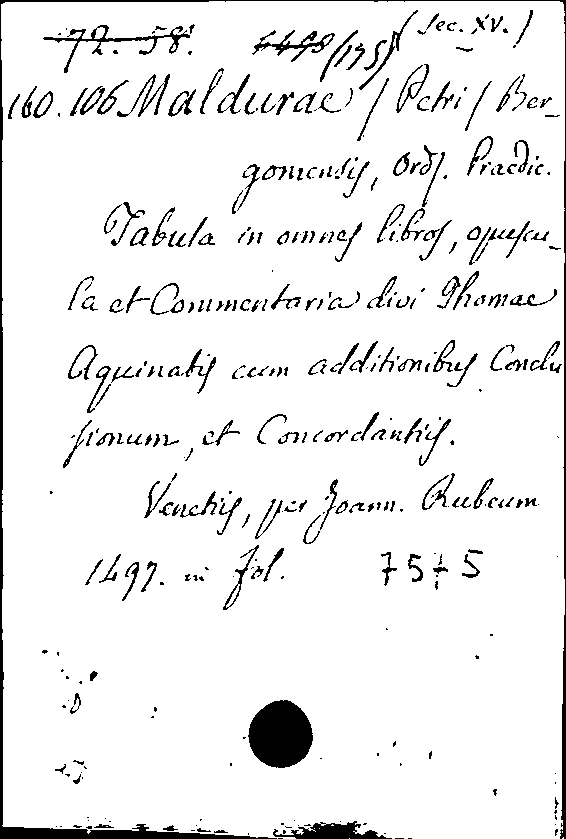 72. 58. 6498 (175) (Sec. XV.)
160.106 Maldurae / Petri / Ber-
gomensis, Ord. Praedic.
Tabula in omnes libros, opuscu-
la et Commentaria divi Thomae
Aquinatis cum additionibus Conclu
sionum, et Concordantiis.
Venetiis, per Joann. Rubeum
1497. in fol. 7575